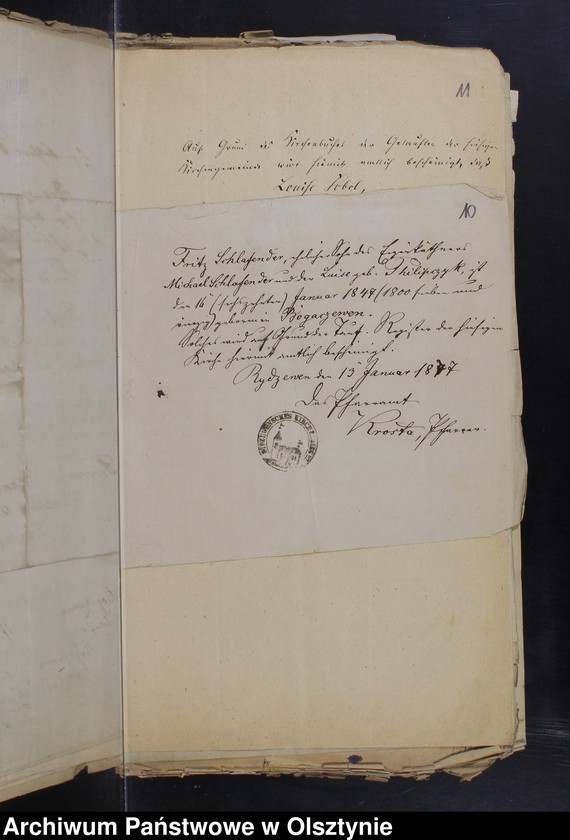 11
Auf Grund des Kirchenbuches der Getauften der hiesigen
Kirchengemeinde wird hiermit amtlich bescheinigt, daß
Louise Sobol,
10
Fritz Schlafender, ehelicher Sohn des Eigenkäthners
Michael Schlafender und der Luise geb. Philipczyk, ist
den 16 (sechszehnten) Januar 1847 (1800 sieben und
vierzig) geboren in Bogaczewen.
Solches wird auf Grund des Tauf-Registers der hiesigen
Kirche hiermit amtlich bescheinigt.
Rydzewen den 13 Januar 1877
Das Pfarramt
Krosta, Pfarrer.
Archiwum Państwowe w Olsztynie